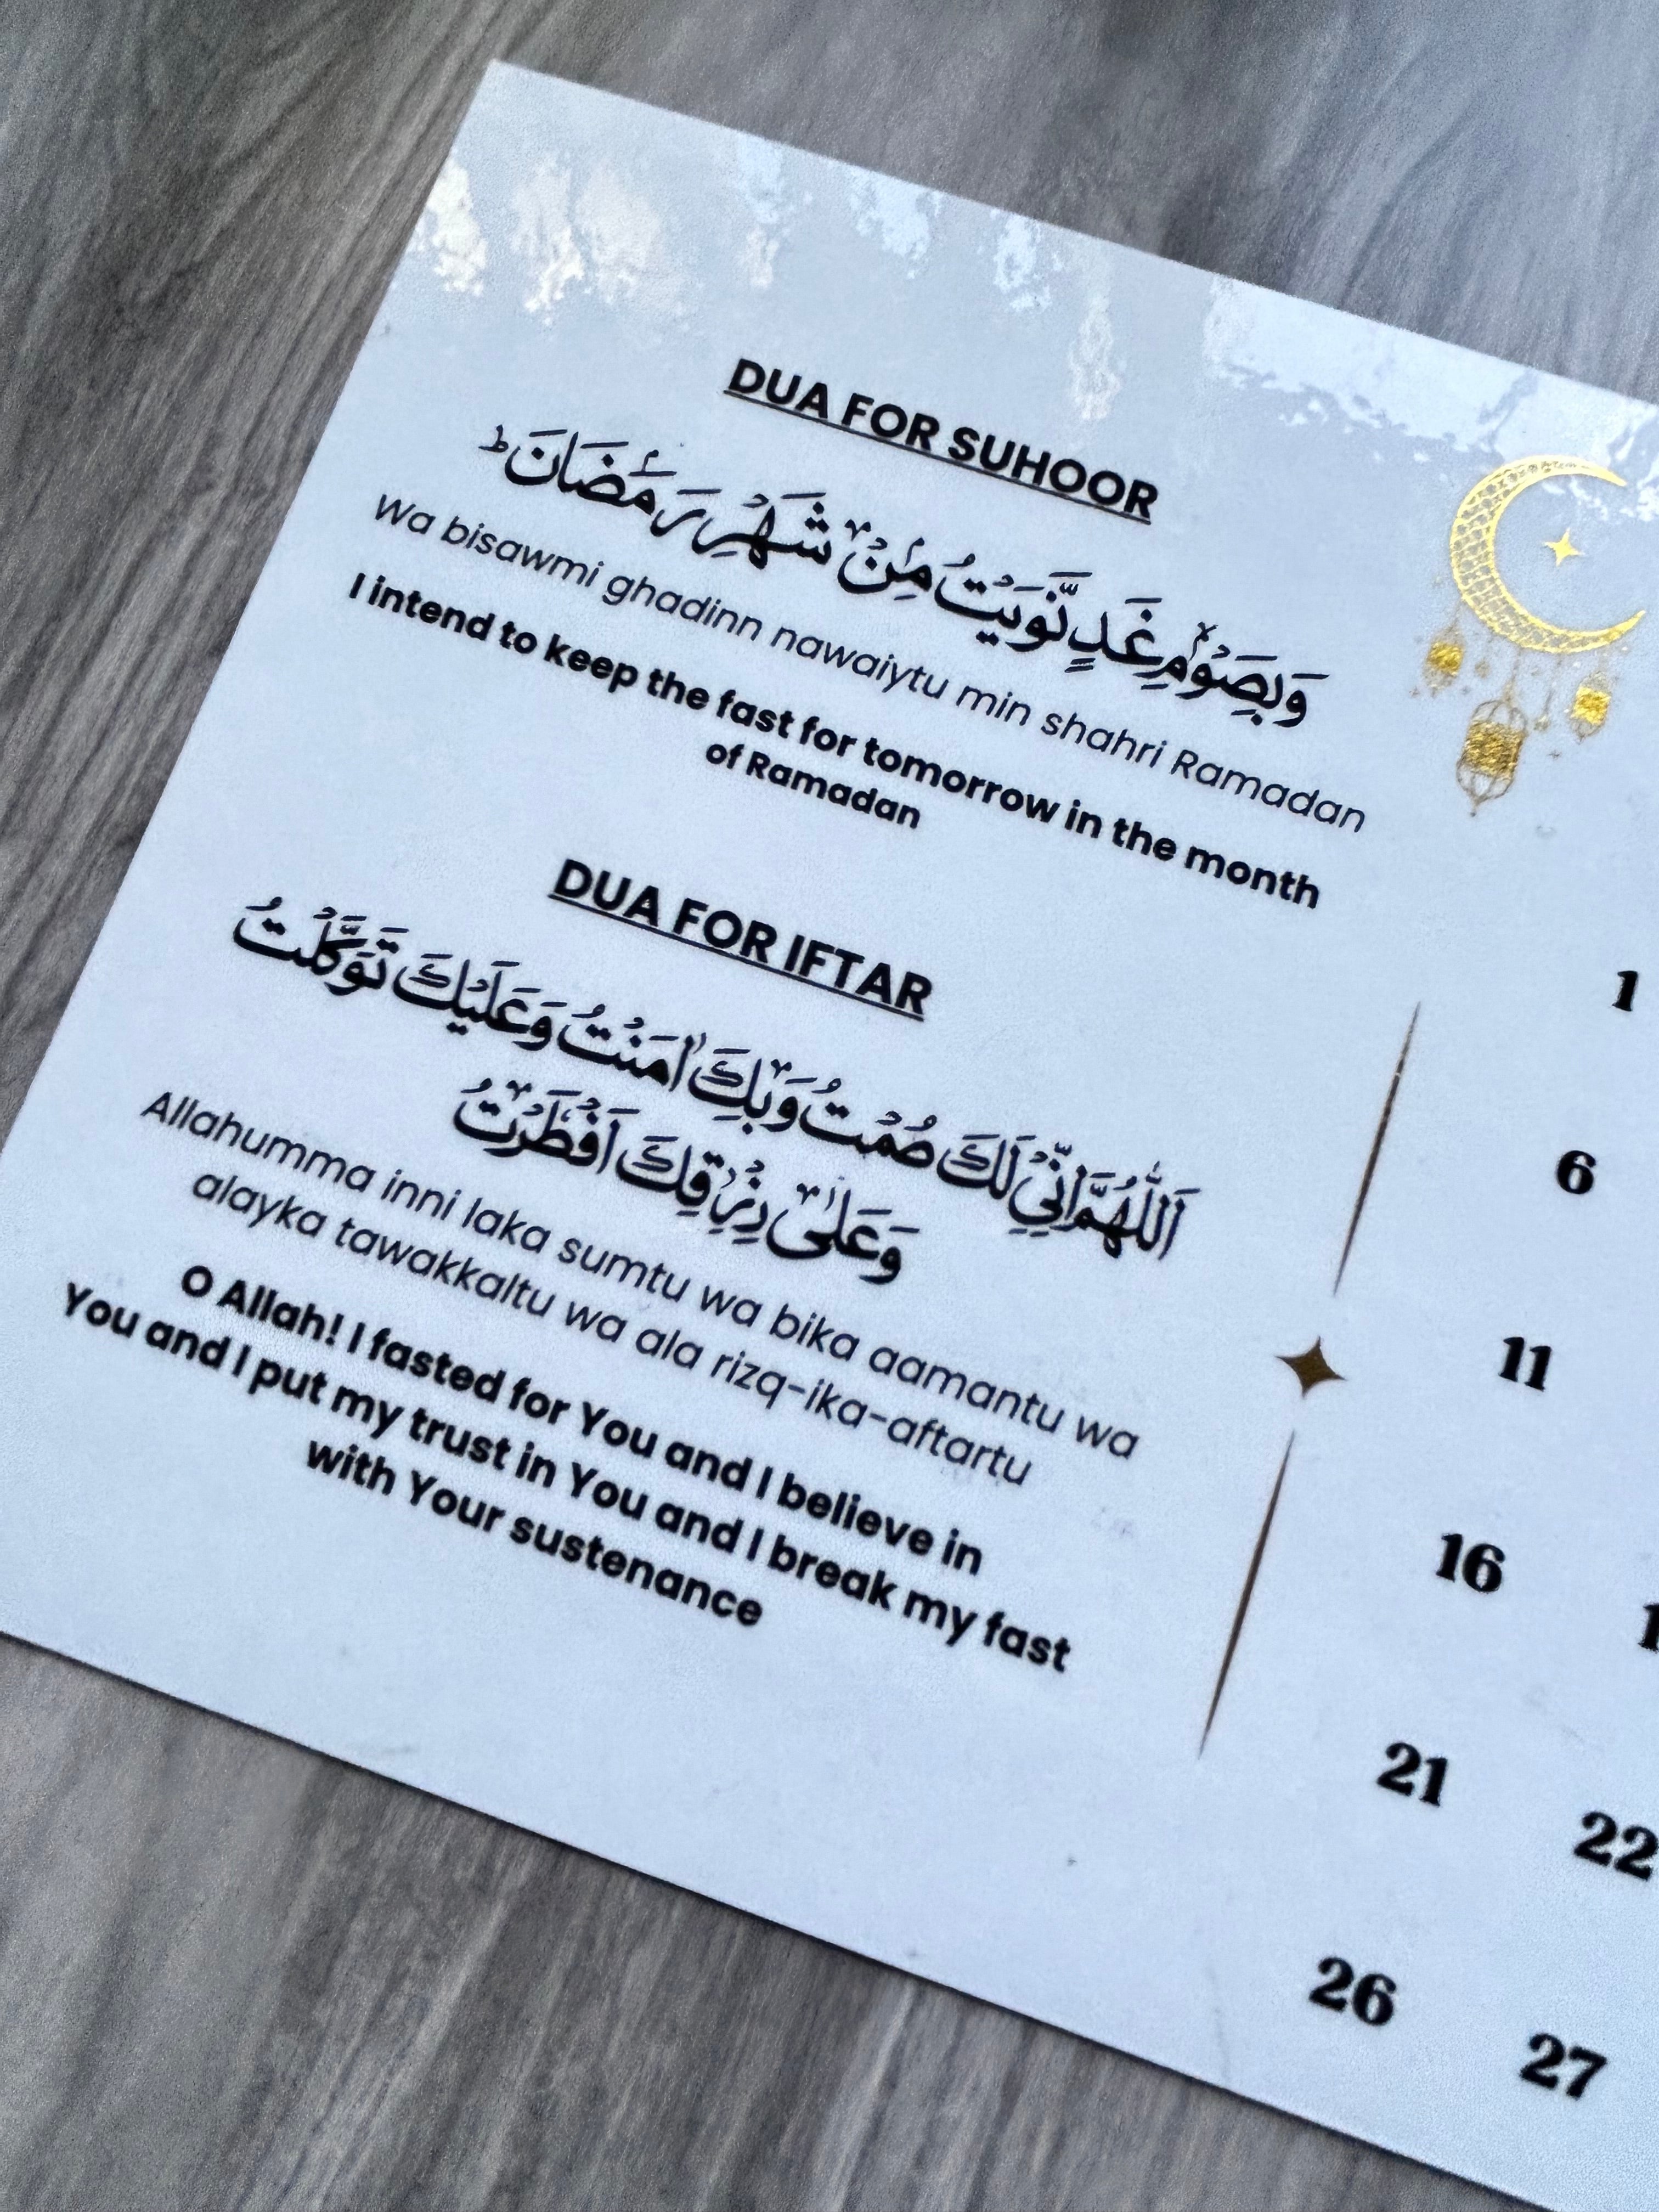 DUA FOR SUHOOR
وَبِصَوْمِ غَدٍ نَّوَيْتُ مِنْ شَهْرِ رَمَضَانَ ؕ
Wa bisawmi ghadinn nawaiytu min shahri Ramadan
I intend to keep the fast for tomorrow in the month
of Ramadan
DUA FOR IFTAR
اَللّٰهُمَّ اِنِّيْ لَكَ صُمْتُ وَبِكَ اٰمَنْتُ وَعَلَيْكَ تَوَكَّلْتُ
وَعَلٰى رِزْقِكَ اَفْطَرْتُ
Allahumma inni laka sumtu wa bika aamantu wa
alayka tawakkaltu wa ala rizq-ika-aftartu
O Allah! I fasted for You and I believe in
You and I put my trust in You and I break my fast
with Your sustenance
1
6
11
16
21 22
26 27